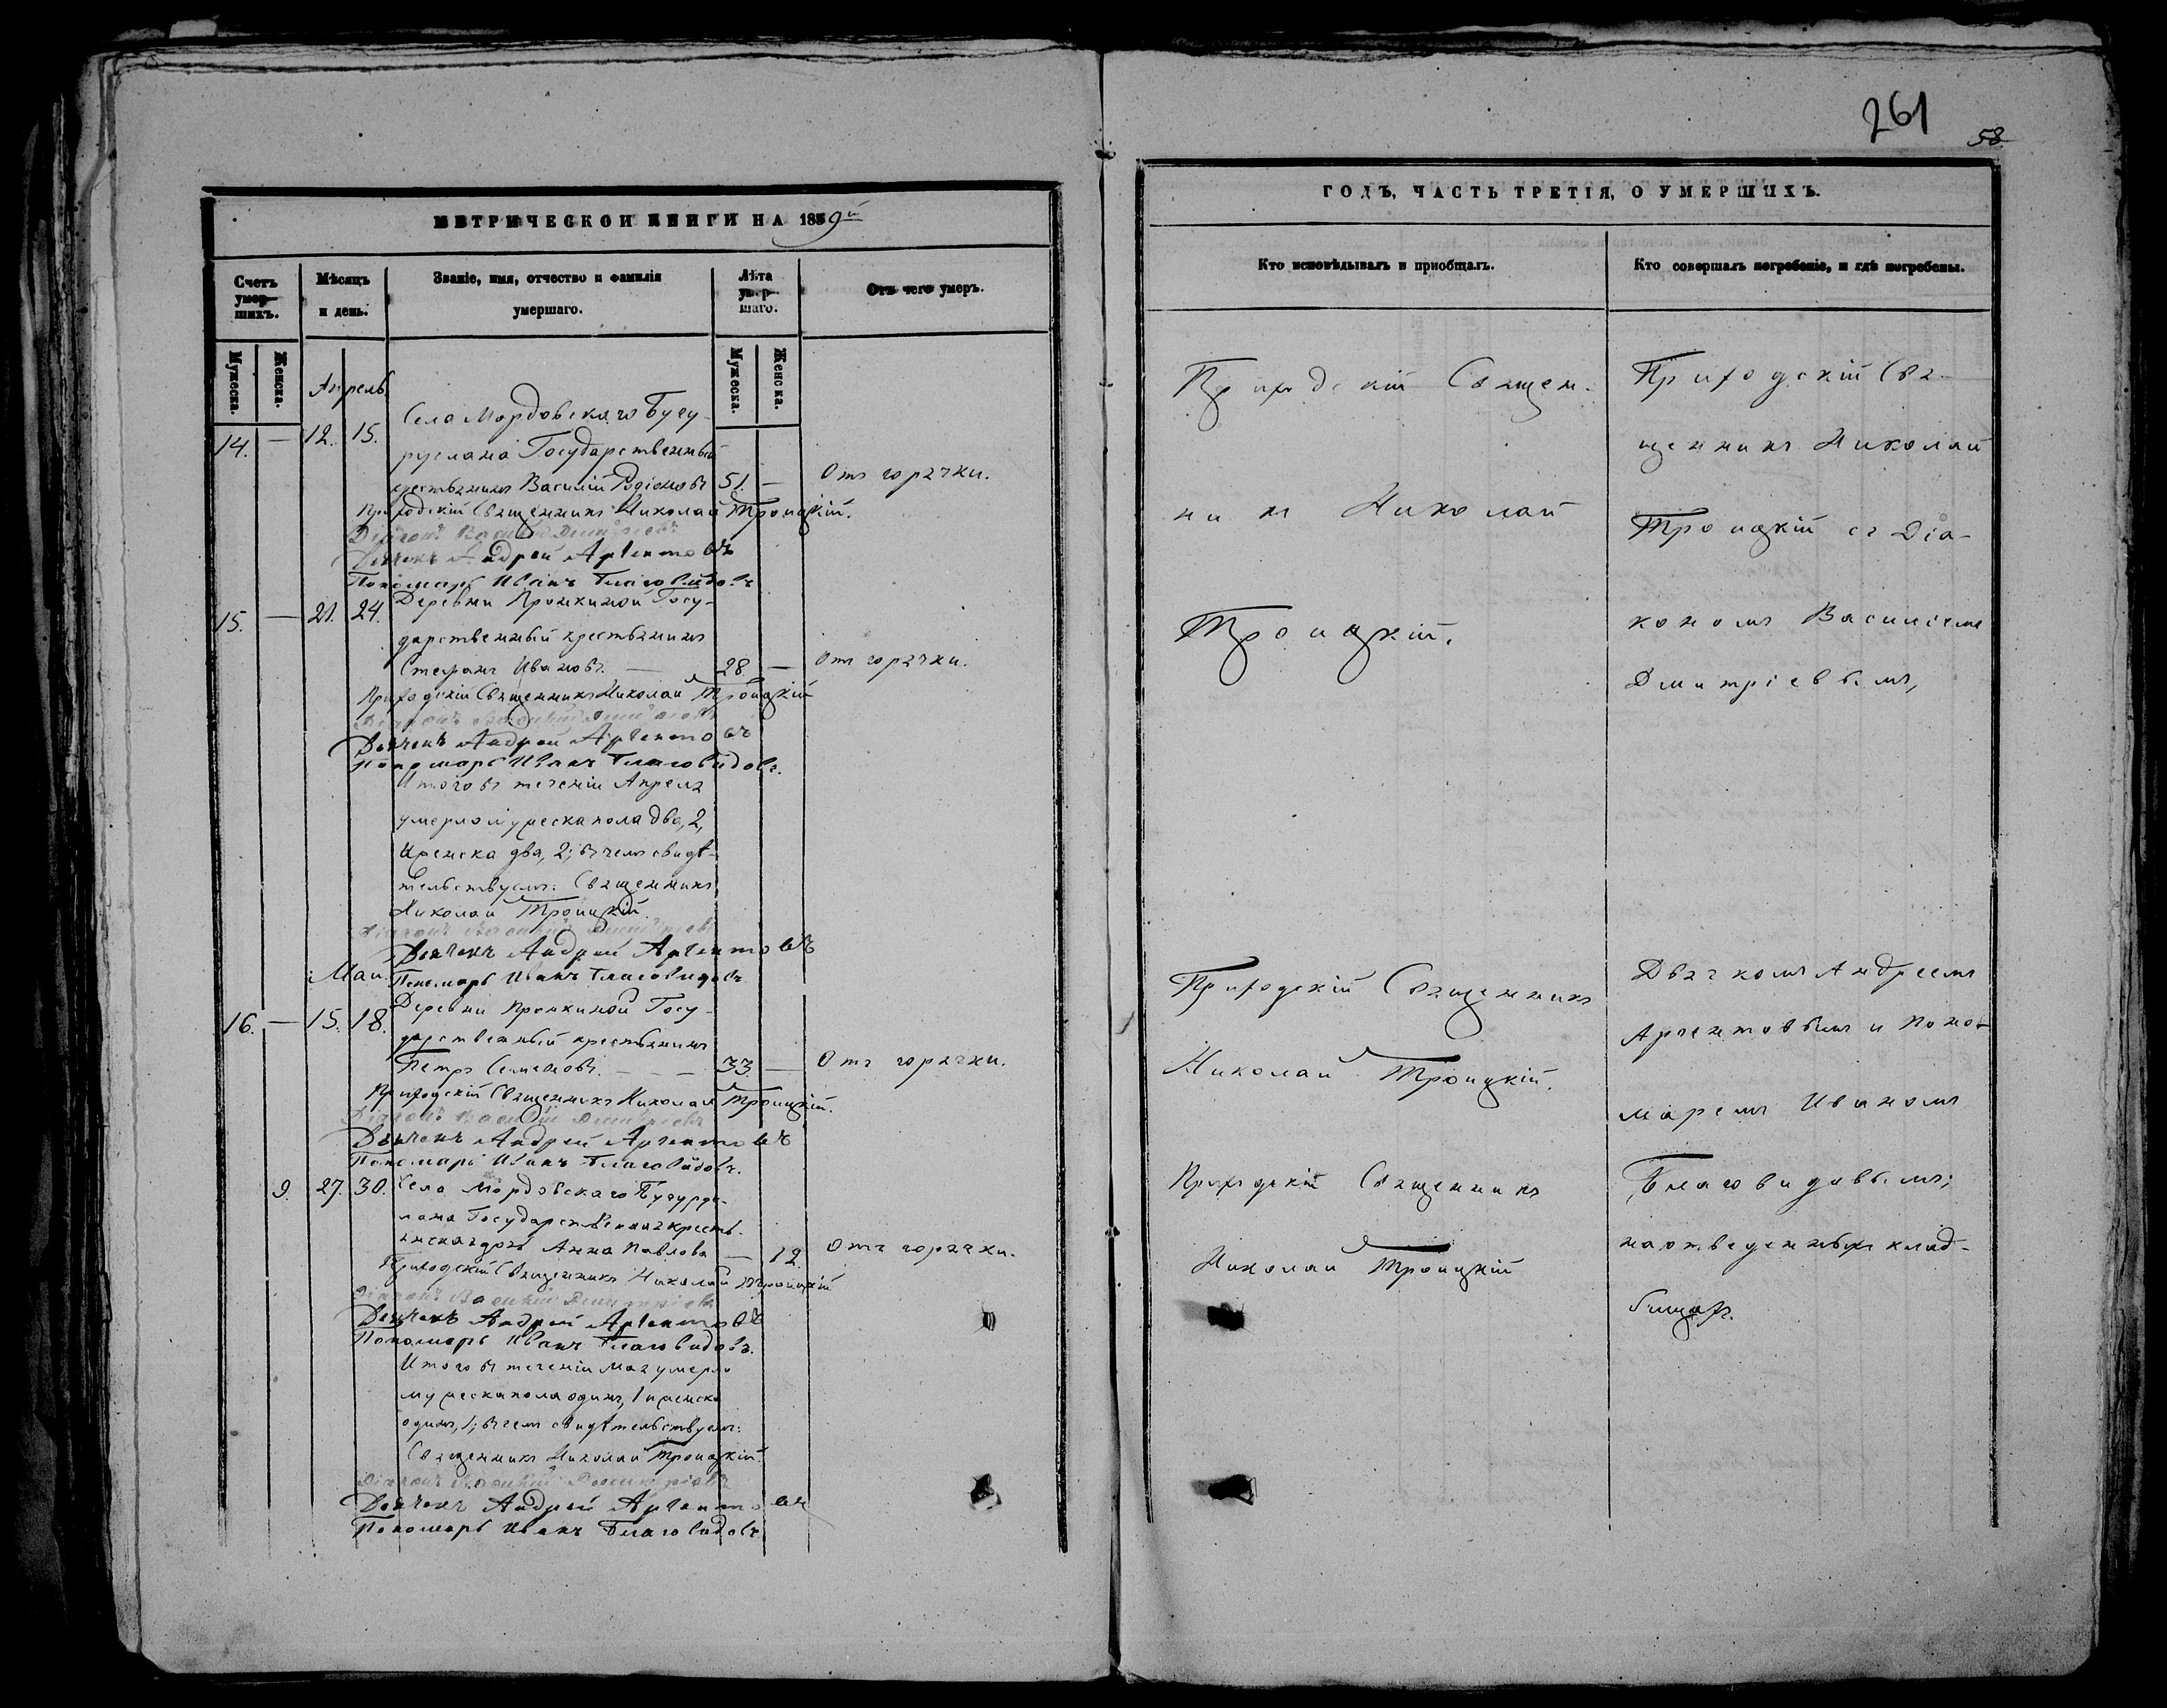 МЕТРИЧЕСКОЙ КНИГИ НА 1859й
Счетъ умер-шихъ.
Мѣсяцъ и день.
Званіе, имя, отчество и фамилія умершаго.
Лѣта умер-шаго.
Отъ чего умеръ.
Мужеска.
Женска.
Мужеска.
Женска.
Апрель
Села Мордовскаго Бугу-
14. — 12. 15.
руслана Государственный
крестьянинъ Василій Родіоновъ 51. — Отъ горячки.
Приходскій Священникъ Николай Троицкій.
Діаконъ Василій Дмитріевъ
Дьячекъ Андрей Аргентовъ
Пономарь Иванъ Благовидовъ
15. — 21. 24. Деревни Пронкиной Госу-
дарственный крестьянинъ
Стефанъ Ивановъ. — 28. — Отъ горячки.
Приходскій Священникъ Николай Троицкій
Діаконъ Василій Дмитріевъ
Дьячекъ Андрей Аргентовъ
Пономарь Иванъ Благовидовъ.
Итого въ теченіи Апреля
умерло мужеска пола два, 2,
женска два, 2; въ чемъ свидѣ-
тельствуемъ: Священникъ
Николай Троицкій.
Діаконъ Василій Дмитріевъ
Дьячекъ Андрей Аргентовъ
Май. Пономарь Иванъ Благовидовъ
Деревни Пронкиной Госу-
16. — 15. 18.
дарственный крестьянинъ
Петръ Семеновъ. — — 33. — Отъ горячки.
Приходскій Священникъ Николай Троицкій.
Діаконъ Василій Дмитріевъ
Дьячекъ Андрей Аргентовъ
Пономарь Иванъ Благовидовъ.
9. 27. 30. Села Мордовскаго Бугурус-
лана Государственная кресть-
янская дочь Анна Павлова — 12. Отъ горячки.
Приходскій Священникъ Николай Троицкій
Діаконъ Василій Дмитріевъ
Дьячекъ Андрей Аргентовъ
Пономарь Иванъ Благовидовъ.
Итого въ теченіи Мая умерло
мужеска пола одинъ, 1 и женска
одинъ, 1; въ чемъ свидѣтельствуемъ:
Священникъ Николай Троицкій.
Діаконъ Василій Дмитріевъ
Дьячекъ Андрей Аргентовъ
Пономарь Иванъ Благовидовъ
261
58
ГОДЪ, ЧАСТЬ ТРЕТІЯ, О УМЕРШИХЪ.
Кто исповѣдывалъ и пріобщалъ.
Кто совершалъ погребеніе, и гдѣ погребены.
Приходскій Священ-
никъ Николай
Троицкій.
Приходскій Священникъ
Николай Троицкій.
Приходскій Священникъ
Николай Троицкій
Приходскій Свя-
щенникъ Николай
Троицкій съ Діа-
кономъ Василіемъ
Дмитріевымъ,
Дьячкомъ Андреемъ
Аргентовымъ и Поно-
маремъ Иваномъ
Благовидовымъ;
на отведенныхъ клад-
бищахъ.